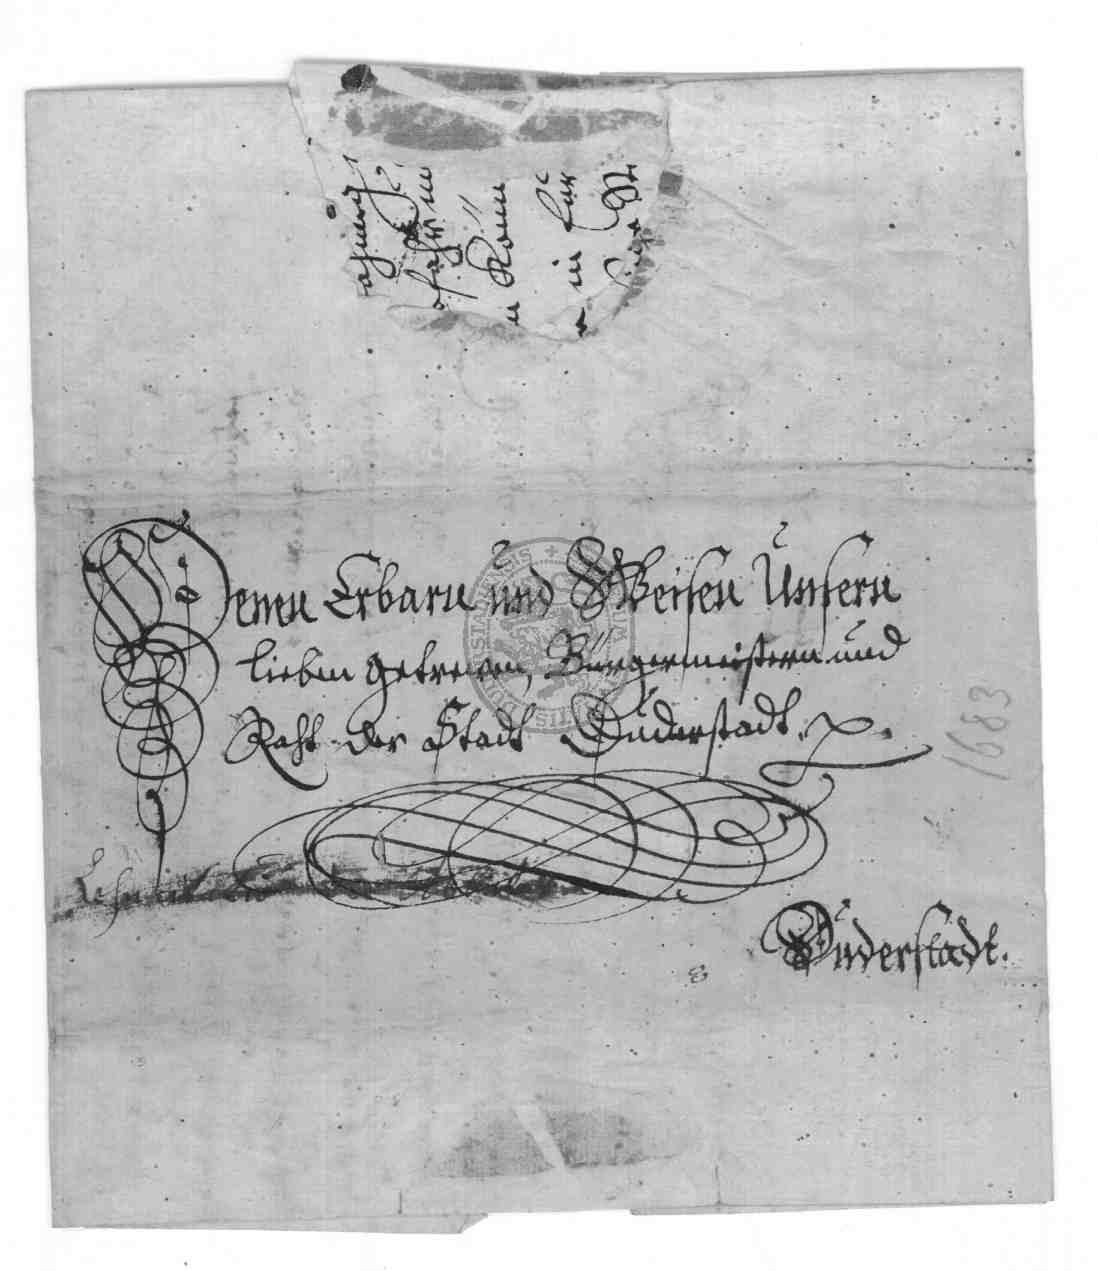 Denen Erbarn und Weisen Unsern
lieben getrewen, Bürgermeistern und
Raht der Stadt Duderstadt. p.
1683
Duderstadt.
in